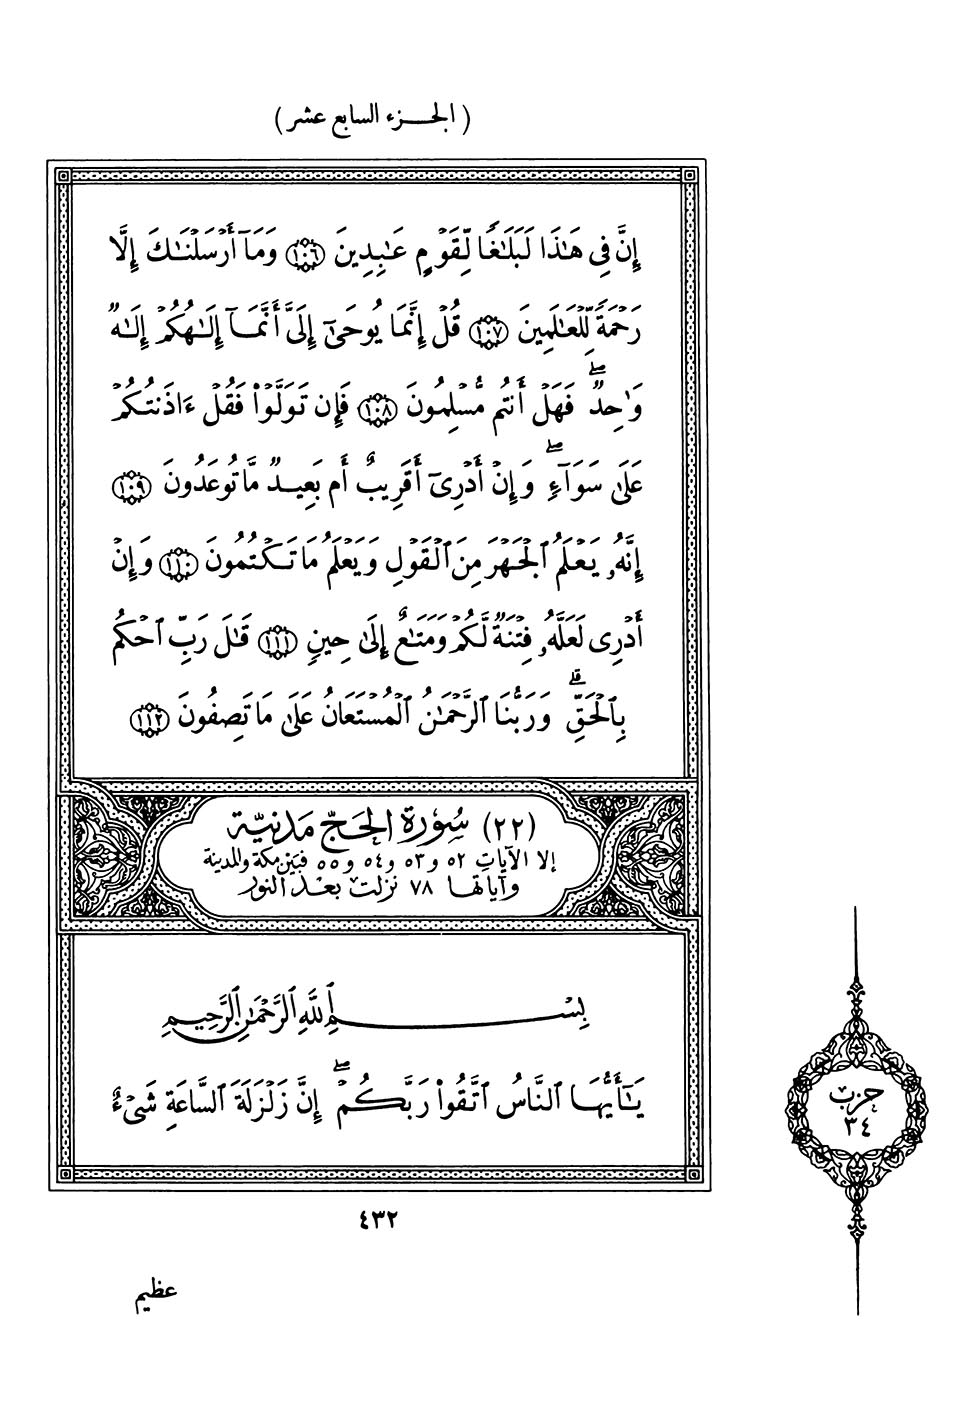 ( الجزء السابع عشر )
إِنَّ فِي هَٰذَا لَبَلَٰغًا لِّقَوْمٍ عَٰبِدِينَ ١٠٦ وَمَآ أَرْسَلْنَٰكَ إِلَّا
رَحْمَةً لِّلْعَٰلَمِينَ ١٠٧ قُلْ إِنَّمَا يُوحَىٰٓ إِلَيَّ أَنَّمَآ إِلَٰهُكُمْ إِلَٰهٌ
وَٰحِدٌۖ فَهَلْ أَنتُم مُّسْلِمُونَ ١٠٨ فَإِن تَوَلَّوْاْ فَقُلْ ءَاذَنتُكُمْ
عَلَىٰ سَوَآءٍۖ وَإِنْ أَدْرِىٓ أَقَرِيبٌ أَم بَعِيدٌ مَّا تُوعَدُونَ ١٠٩
إِنَّهُۥ يَعْلَمُ ٱلْجَهْرَ مِنَ ٱلْقَوْلِ وَيَعْلَمُ مَا تَكْتُمُونَ ١١٠ وَإِنْ
أَدْرِى لَعَلَّهُۥ فِتْنَةٌ لَّكُمْ وَمَتَٰعٌ إِلَىٰ حِينٍ ١١١ قَٰلَ رَبِّ ٱحْكُم
بِٱلْحَقِّۗ وَرَبُّنَا ٱلرَّحْمَٰنُ ٱلْمُسْتَعَانُ عَلَىٰ مَا تَصِفُونَ ١١٢
(٢٢) سُورَة الحَجّ مَدنيّة
إلا الآيات ٥٢ و٥٣ و٥٤ و٥٥ فبين مكة والمدينة
وآياتها ٧٨ نزلت بعد النور
بِسْمِ ٱللَّهِ ٱلرَّحْمَٰنِ ٱلرَّحِيمِ
يَٰٓأَيُّهَا ٱلنَّاسُ ٱتَّقُواْ رَبَّكُمْۖ إِنَّ زَلْزَلَةَ ٱلسَّاعَةِ شَىْءٌ
حزب
٣٤
٤٣٢
عظيم